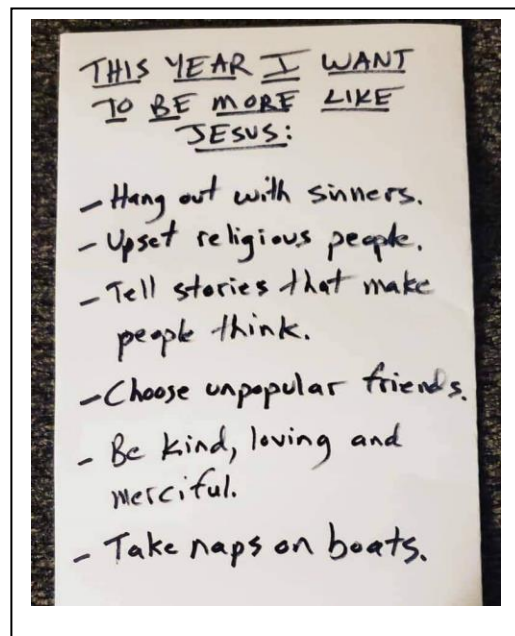 THIS YEAR I WANT
TO BE MORE LIKE
JESUS:
- Hang out with sinners.
- Upset religious people.
- Tell stories that make
people think.
- Choose unpopular friends.
- Be kind, loving and
merciful.
- Take naps on boats.